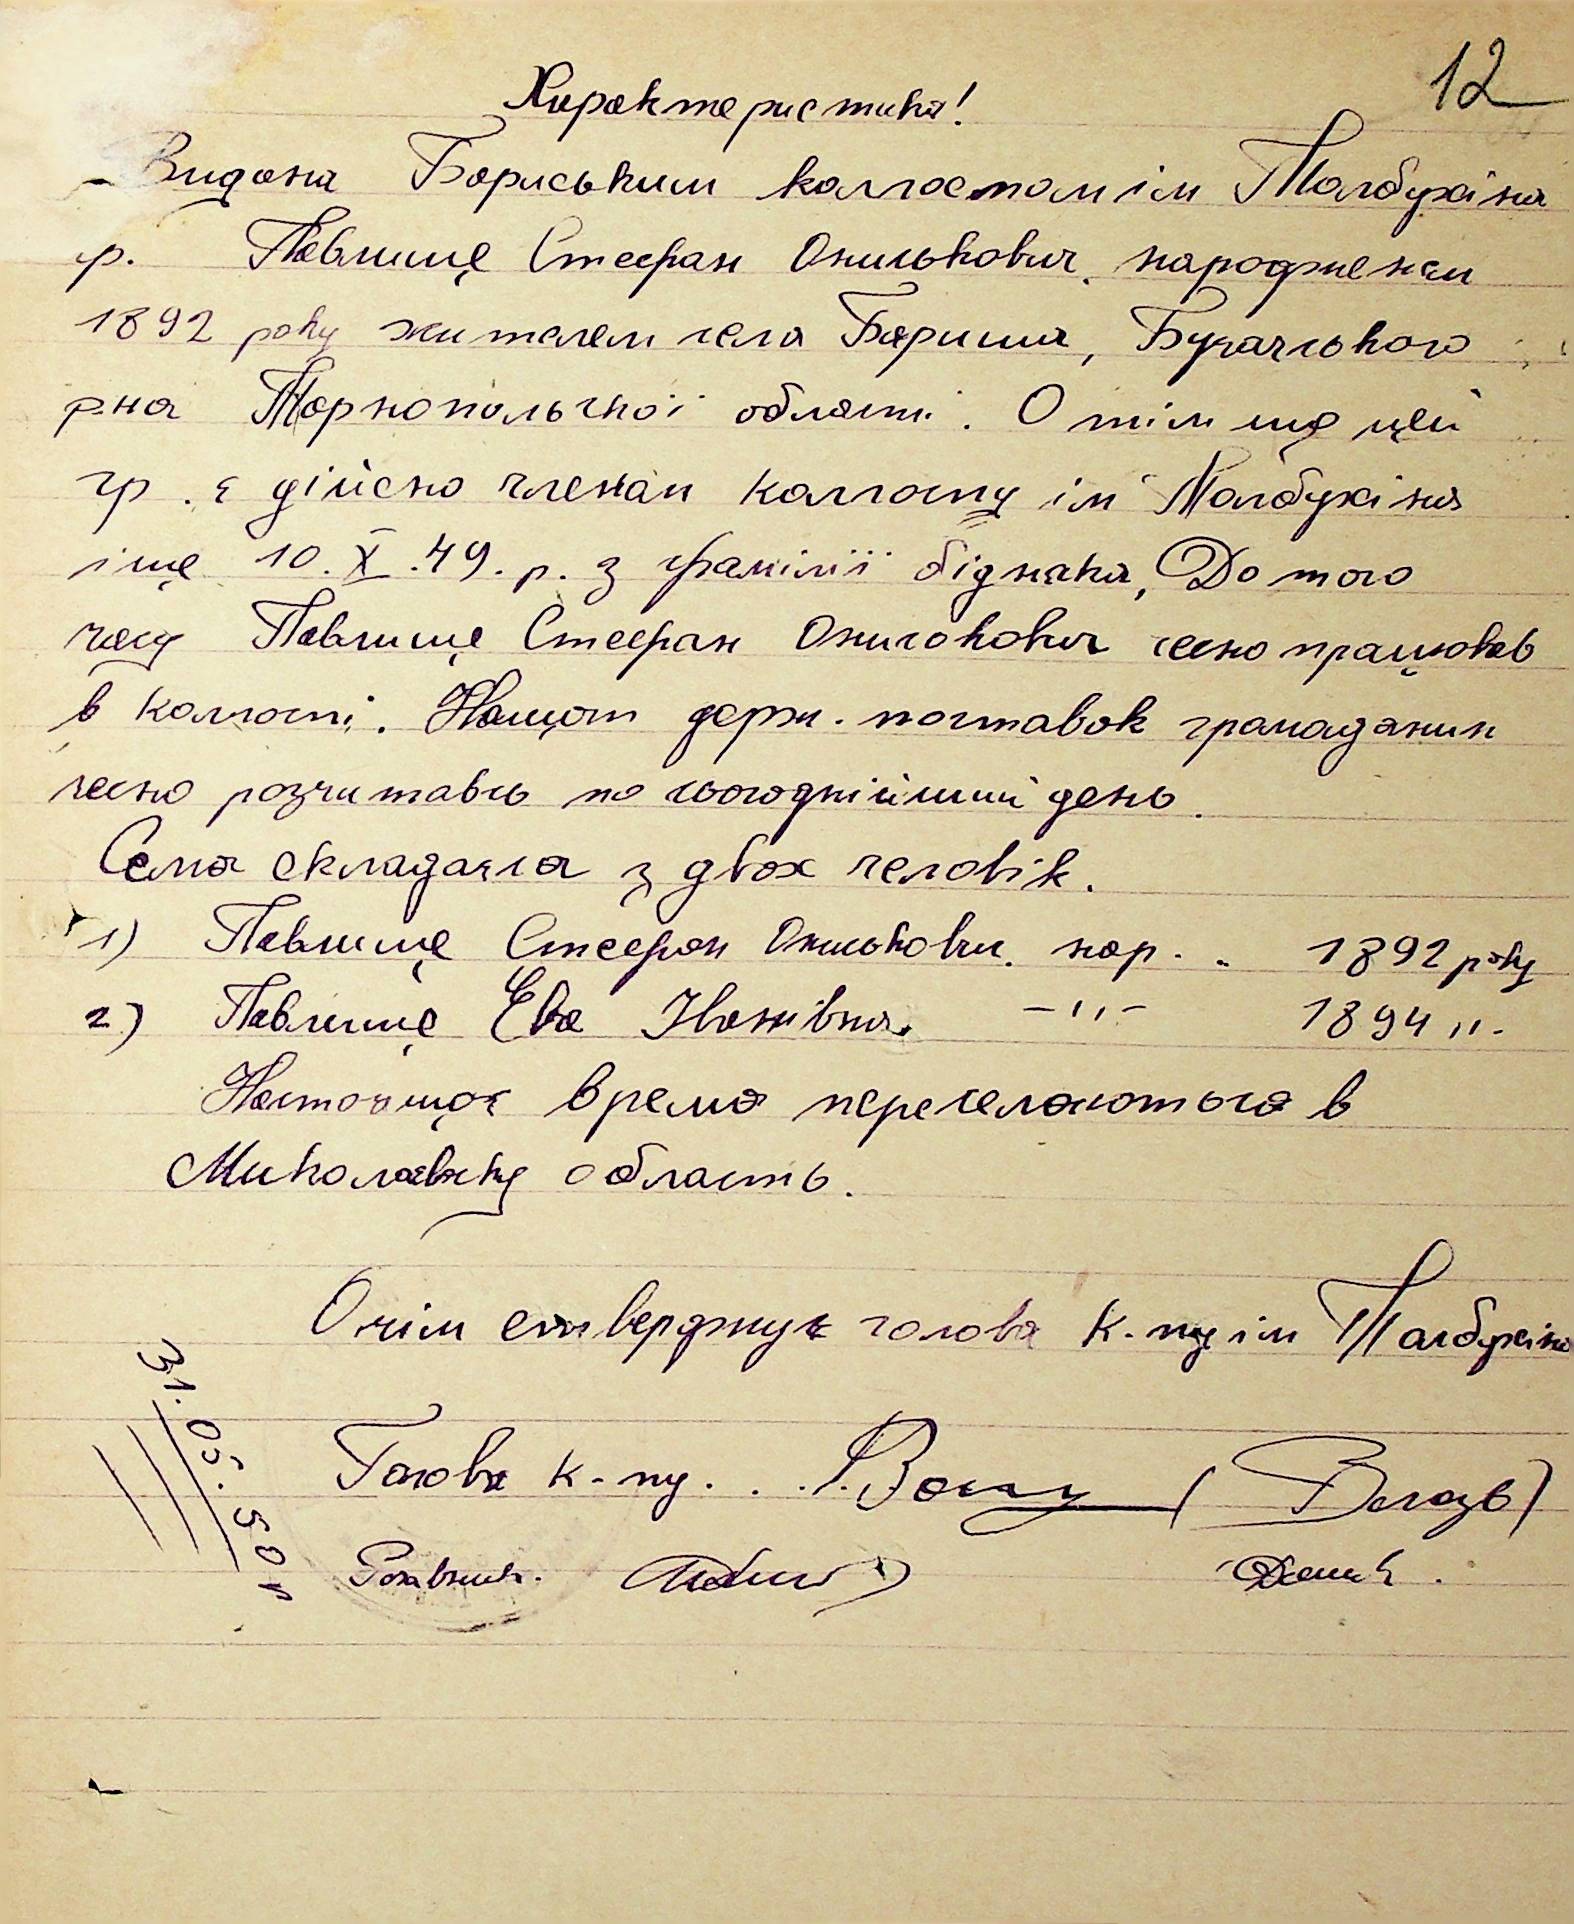 12
Характеристика!
Видана Бориським колгоспом ім Толбухіна
гр. Павлище Стефан Онилькович. народжений
1892 року жителем села Бариша, Бучачського
р-на Тарнопольчкої області. О тім що цей
гр. є дійсно членам колгоспу ім Толбухіна
іще 10.X.49.р. з фамілії бідняка, До того
часу Павлище Стефан Онилькович чесно працював
в колгоспі. Нащот держ. поставок громадянин
чесно розчитавсь по сьогоднійший день.
Сема складаяся з двох человік.
1) Павлище Стефан Онилькович. нар. „ 1892 року
2) Павлище Ева Іванівна. –"– 1894 "-
Настоящоє время переселяються в
Миколаївську область.
О чім стверджує голова к-пу ім Толбухіна
Голова к-пу. . .
31.05.50 р